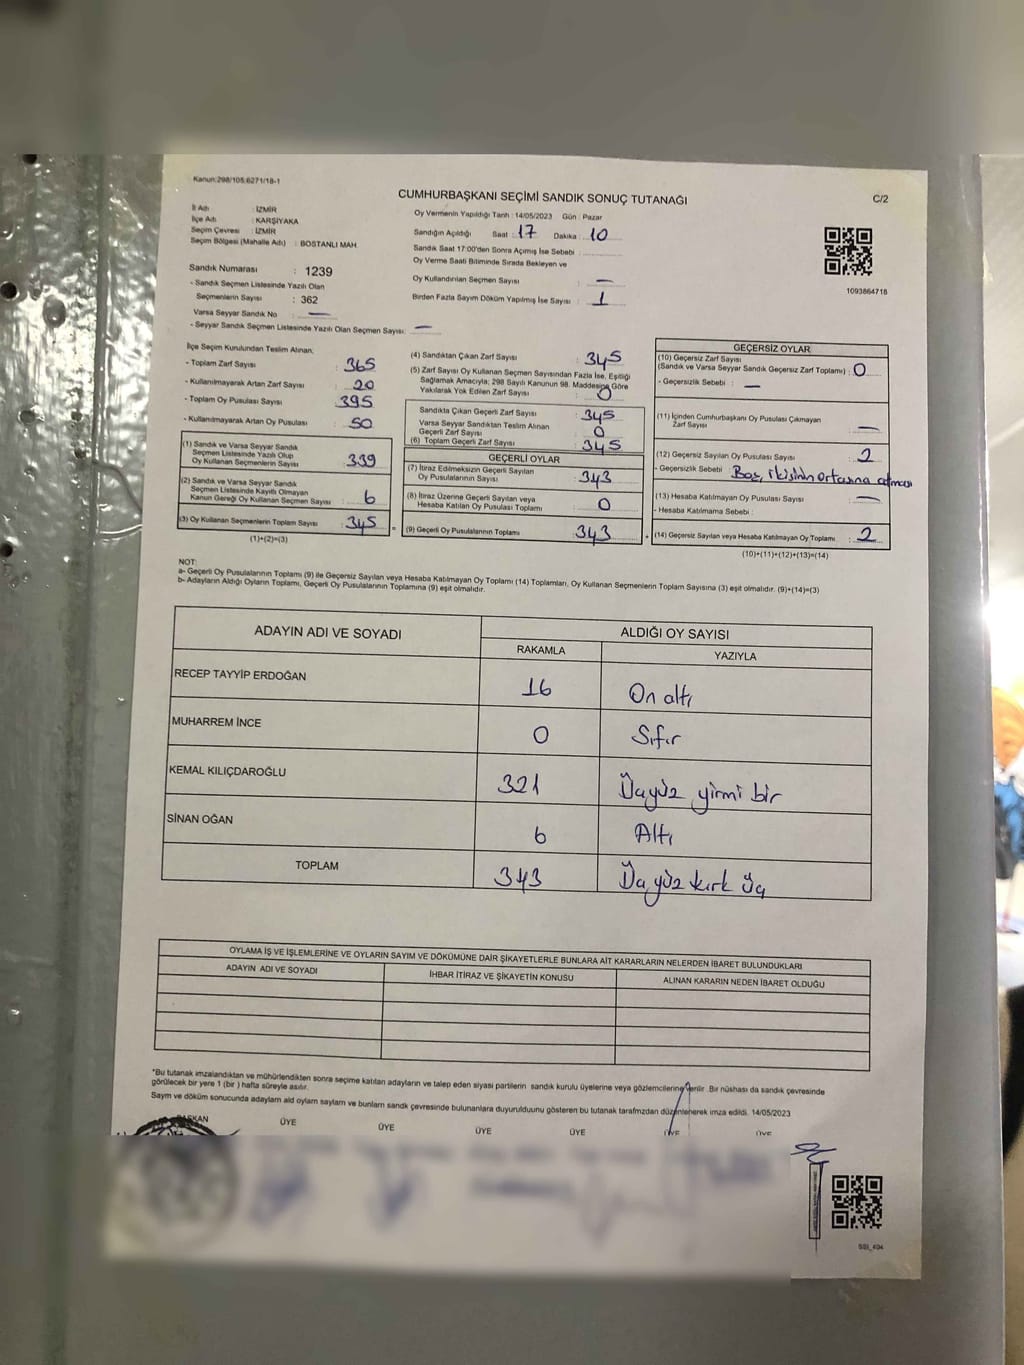 Kanun:298/105,6271/18-1
CUMHURBAŞKANI SEÇİMİ SANDIK SONUÇ TUTANAĞI
C/2
İl Adı : İZMİR
İlçe Adı : KARŞIYAKA
Seçim Çevresi : İZMİR
Seçim Bölgesi (Mahalle Adı) : BOSTANLI MAH.
Oy Vermenin Yapıldığı Tarih : 14/05/2023 Gün : Pazar
Sandığın Açıldığı Saat : 17 Dakika : 10
Sandık Saat 17:00'den Sonra Açılmış İse Sebebi :
Oy Verme Saati Bitiminde Sırada Bekleyen ve
Oy Kullandırılan Seçmen Sayısı : —
Birden Fazla Sayım Döküm Yapılmış İse Sayısı : 1
1093864718
Sandık Numarası : 1239
- Sandık Seçmen Listesinde Yazılı Olan
Seçmenlerin Sayısı : 362
Varsa Seyyar Sandık No : —
- Seyyar Sandık Seçmen Listesinde Yazılı Olan Seçmen Sayısı: —
İlçe Seçim Kurulundan Teslim Alınan;
- Toplam Zarf Sayısı : 365
- Kullanılmayarak Artan Zarf Sayısı : 20
- Toplam Oy Pusulası Sayısı : 395
- Kullanılmayarak Artan Oy Pusulası : 50
(1) Sandık ve Varsa Seyyar Sandık
Seçmen Listesinde Yazılı Olup
Oy Kullanan Seçmenlerin Sayısı : 339
(2) Sandık ve Varsa Seyyar Sandık
Seçmen Listesinde Kayıtlı Olmayan
Kanun Gereği Oy Kullanan Seçmen Sayısı : 6
(3) Oy Kullanan Seçmenlerin Toplam Sayısı : 345
(1)+(2)=(3)
(4) Sandıktan Çıkan Zarf Sayısı : 345
(5) Zarf Sayısı Oy Kullanan Seçmen Sayısından Fazla İse, Eşitliği
Sağlamak Amacıyla; 298 Sayılı Kanunun 98. Maddesine Göre
Yakılarak Yok Edilen Zarf Sayısı : 0
Sandıkta Çıkan Geçerli Zarf Sayısı : 345
Varsa Seyyar Sandıktan Teslim Alınan
Geçerli Zarf Sayısı : 0
(6) Toplam Geçerli Zarf Sayısı : 345
GEÇERLİ OYLAR
(7) İtiraz Edilmeksizin Geçerli Sayılan
Oy Pusulalarının Sayısı : 343
(8) İtiraz Üzerine Geçerli Sayılan veya
Hesaba Katılan Oy Pusulası Toplamı : 0
(9) Geçerli Oy Pusulalarının Toplamı : 343
GEÇERSİZ OYLAR
(10) Geçersiz Zarf Sayısı
(Sandık ve Varsa Seyyar Sandık Geçersiz Zarf Toplamı) : 0
- Geçersizlik Sebebi : —
(11) İçinden Cumhurbaşkanı Oy Pusulası Çıkmayan
Zarf Sayısı : —
(12) Geçersiz Sayılan Oy Pusulası Sayısı : 2
- Geçersizlik Sebebi : Boş, ikisinin ortasına atması
(13) Hesaba Katılmayan Oy Pusulası Sayısı : —
- Hesaba Katılmama Sebebi :
(14) Geçersiz Sayılan veya Hesaba Katılmayan Oy Toplamı : 2
(10)+(11)+(12)+(13)=(14)
NOT:
a- Geçerli Oy Pusulalarının Toplamı (9) ile Geçersiz Sayılan veya Hesaba Katılmayan Oy Toplamı (14) Toplamları, Oy Kullanan Seçmenlerin Toplam Sayısına (3) eşit olmalıdır. (9)+(14)=(3)
b- Adayların Aldığı Oyların Toplamı, Geçerli Oy Pusulalarının Toplamına (9) eşit olmalıdır.
ADAYIN ADI VE SOYADI
ALDIĞI OY SAYISI
RAKAMLA YAZIYLA
RECEP TAYYİP ERDOĞAN 16 On altı
MUHARREM İNCE 0 Sıfır
KEMAL KILIÇDAROĞLU 321 Üçyüz yirmi bir
SİNAN OĞAN 6 Altı
TOPLAM 343 Üçyüz kırk üç
OYLAMA İŞ VE İŞLEMLERİNE VE OYLARIN SAYIM VE DÖKÜMÜNE DAİR ŞİKAYETLERLE BUNLARA AİT KARARLARIN NELERDEN İBARET BULUNDUKLARI
ADAYIN ADI VE SOYADI İHBAR İTİRAZ VE ŞİKAYETİN KONUSU ALINAN KARARIN NEDEN İBARET OLDUĞU
*Bu tutanak imzalandıktan ve mühürlendikten sonra seçime katılan adayların ve talep eden siyasi partilerin sandık kurulu üyelerine veya gözlemcilerine verilir. Bir nüshası da sandık çevresinde
görülecek bir yere 1 (bir) hafta süreyle asılır.
Sayım ve döküm sonucunda adayların ald oyların sayların ve bunların sandık çevresinde bulunanlara duyurulduunu gösteren bu tutanak tarafmzdan düzenlenerek imza edildi. 14/05/2023
BAŞKAN ÜYE ÜYE ÜYE ÜYE ÜYE ÜYE
SSI_404